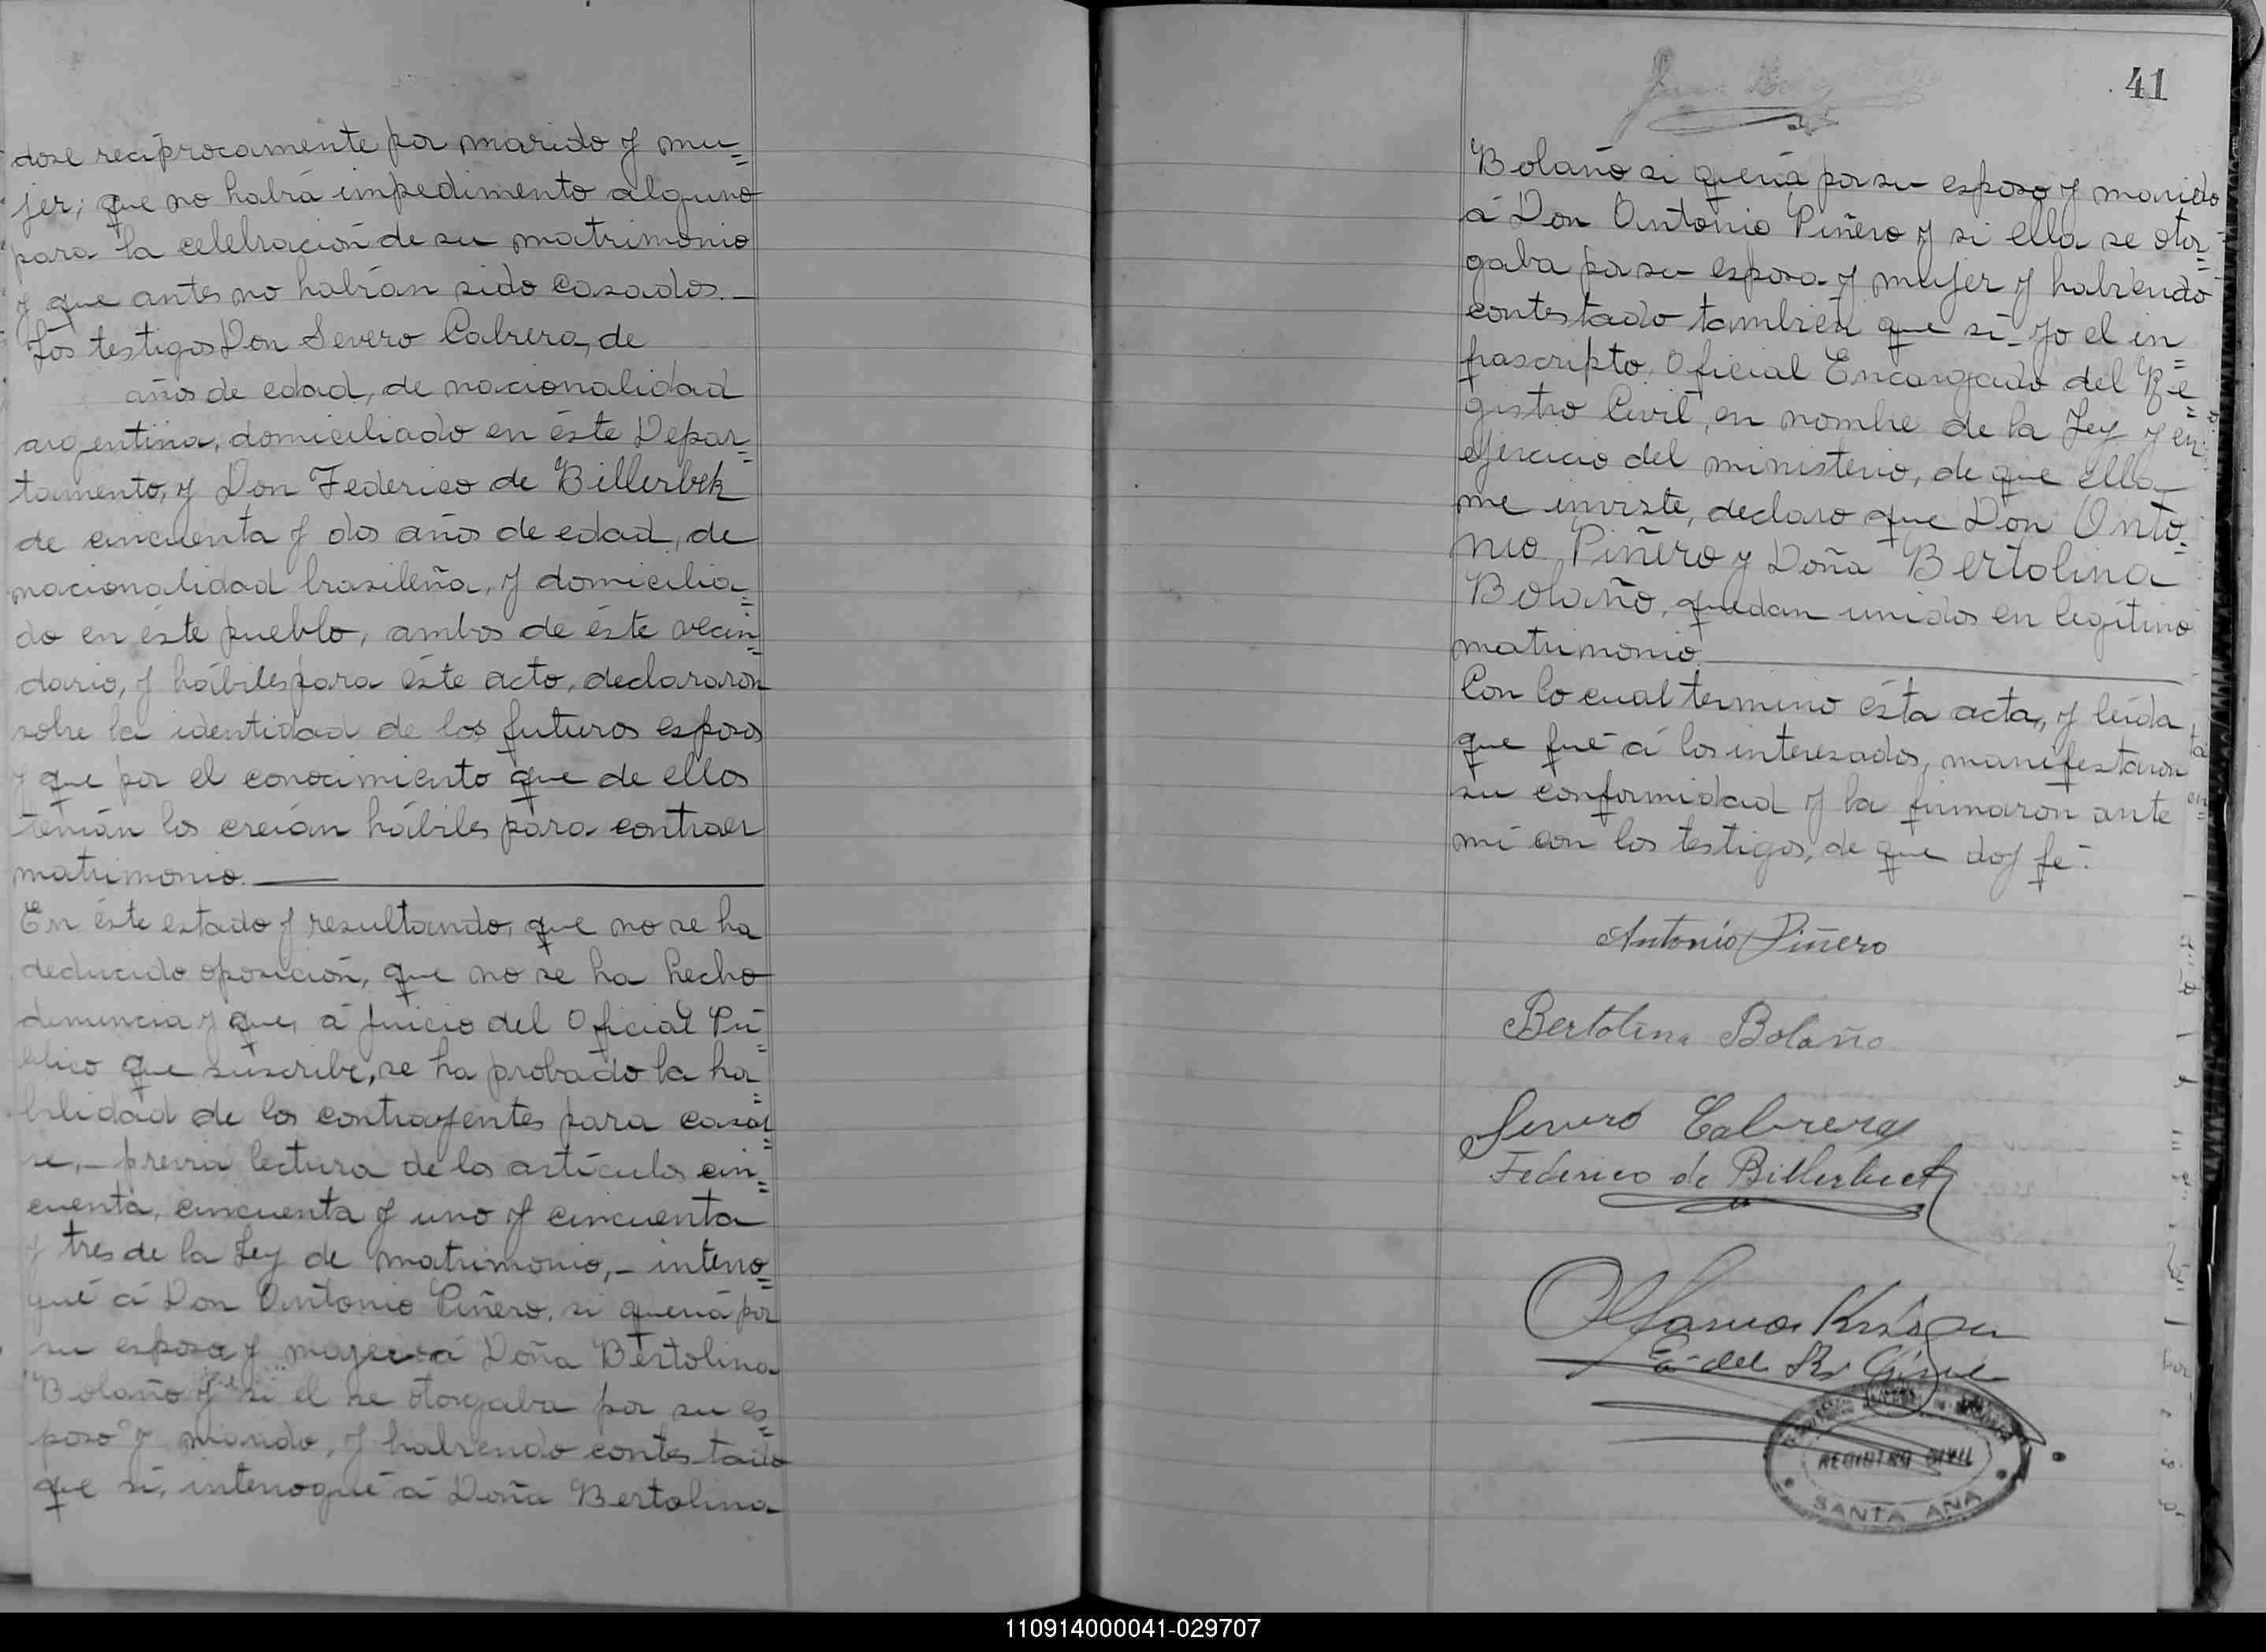 dose reciprocamente por marido y mu=
jer; que no habrá impedimento alguno
para la celebración de su matrimonio
y que antes no habrán sido casados.—
Los testigos Don Severo Cabrera, de
años de edad, de nacionalidad
argentina, domiciliado en éste Depar=
tamento, y Don Federico de Billerbek
de cincuenta y dos años de edad, de
nacionalidad brasileña, y domicilia=
do en éste pueblo, ambos de éste vecin=
dario, y hábiles para éste acto, declararon
sobre la identidad de los futuros esposos
y que por el conocimiento que de ellos
tenián los creián hábiles para contraer
matrimonio.—
En éste estado y resultando, que no se ha
deducido oposición, que no se ha hecho
denuncia y que, á juicio del Oficial Pú=
blico que suscribe, se ha probado la ha=
bilidad de los contrayentes para casar=
se,- previa lectura de los artículos cin=
cuenta, cincuenta y uno y cincuenta
y tres de la Ley de matrimonio,- interro=
gué á Don Antonio Piñero, si queriá por
su esposa y mujer á Doña Bertolina
Bolaño y si el se otorgaba por su es=
poso y marido, y habiendo contestado
que sí, interrogué á Doña Bertolina
41
Bolaño si queriá por su esposo y marido
á Don Antonio Piñero y si ella se otor=
gaba por su esposa y mujer y habiendo
contestado también que sí- yo el in=
frascripto, Oficial Encargado del Re=
gistro Civil, en nombre de la Ley y en
ejercicio del ministerio, de que ella
me inviste, declaro que Don Anto=
nio Piñero y Doña Bertolina
Bolaño, quedan unidos en legítimo
matrimonio.—
Con lo cual terminó ésta acta, y leída
que fué á los interesados, manifestaron
su conformidad y la firmaron ante
mí con los testigos, de que doy fé-.
Antonio Piñero
Bertolina Bolaño
Severo Cabrera
Federico de Billerbeck
E. del R. Civil
REGISTRO CIVIL
SANTA ANA
110914000041-029707